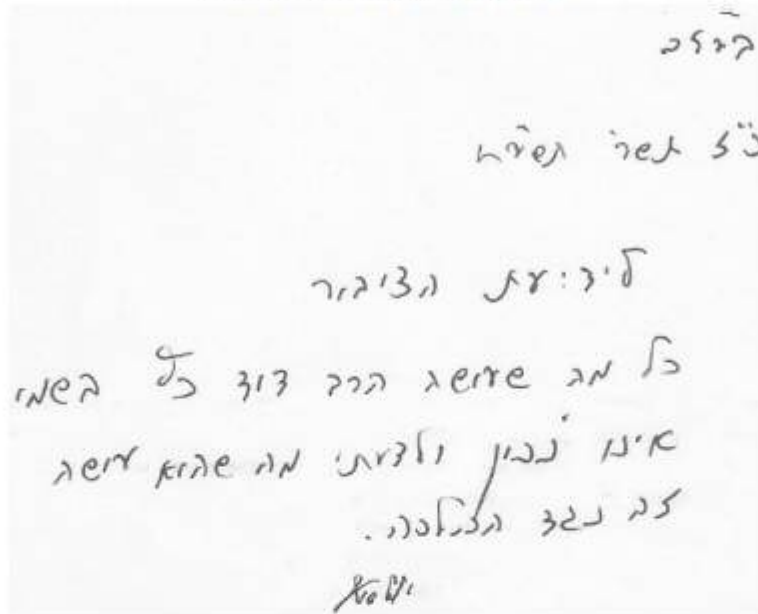 כ"ז תשרי תשע"ח
לידיעת הציבור
כל מה שעושה הרב דוד כל בשמי
אינו נכון ולדעתי מה שהוא עושה
זה נגד ההלכה.